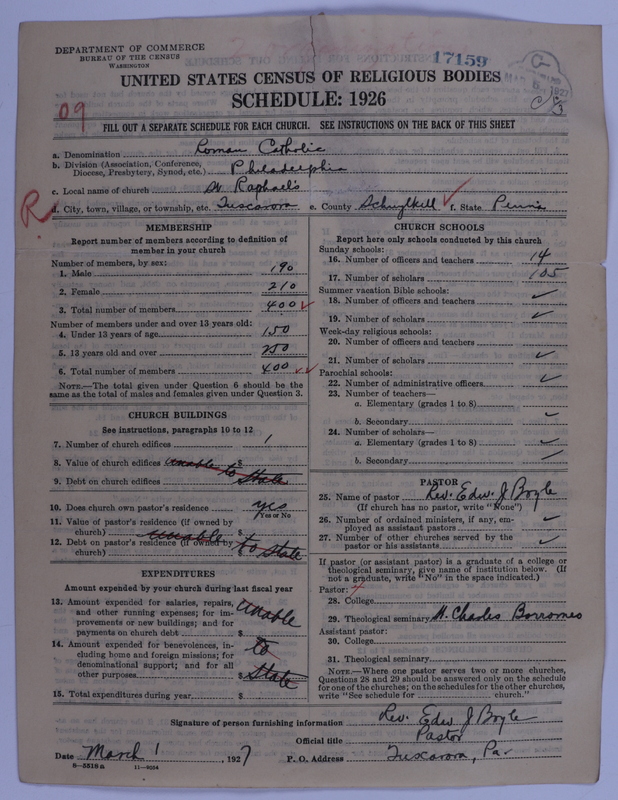 DEPARTMENT OF COMMERCE
BUREAU OF THE CENSUS
WASHINGTON
17159
MAR 5 1927
UNITED STATES CENSUS OF RELIGIOUS BODIES
SCHEDULE: 1926
09
FILL OUT A SEPARATE SCHEDULE FOR EACH CHURCH. SEE INSTRUCTIONS ON THE BACK OF THIS SHEET
a. Denomination Roman Catholic
b. Division (Association, Conference, Diocese, Presbytery, Synod, etc.) Philadelphia
c. Local name of church St. Raphael's
R
d. City, town, village, or township, etc. Tuscarora e. County Schuylkill f. State Penn'a
MEMBERSHIP
Report number of members according to definition of
member in your church
Number of members, by sex:
1. Male 190
2. Female 210
3. Total number of members 400
Number of members under and over 13 years old:
4. Under 13 years of age 150
5. 13 years old and over 250
6. Total number of members 400
NOTE.—The total given under Question 6 should be
same as the total of males and females given under Question 3.
CHURCH BUILDINGS
See instructions, paragraphs 10 to 12
7. Number of church edifices 1
8. Value of church edifices $ unable to State
9. Debt on church edifices $
10. Does church own pastor's residence yes
Yes or No
11. Value of pastor's residence (if owned by
church) $ unable
12. Debt on pastor's residence (if owned by
church) to State
EXPENDITURES
Amount expended by your church during last fiscal year
13. Amount expended for salaries, repairs,
and other running expenses; for im-
provements or new buildings; and for
payments on church debt $ unable
14. Amount expended for benevolences, in-
cluding home and foreign missions; for
denominational support; and for all
other purposes $ to State
15. Total expenditures during year $
CHURCH SCHOOLS
Report here only schools conducted by this church
Sunday schools:
16. Number of officers and teachers 14
17. Number of scholars 105
Summer vacation Bible schools:
18. Number of officers and teachers ✓
19. Number of scholars ✓
Week-day religious schools:
20. Number of officers and teachers
21. Number of scholars ✓
Parochial schools:
22. Number of administrative officers ✓
23. Number of teachers—
a. Elementary (grades 1 to 8)
b. Secondary ✓
24. Number of scholars—
a. Elementary (grades 1 to 8) ✓
b. Secondary ✓
PASTOR
25. Name of pastor Rev. Edw. J Boyle
(If church has no pastor, write "None")
26. Number of ordained ministers, if any, em-
ployed as assistant pastors ✓
27. Number of other churches served by the
pastor or his assistants ✓
If pastor (or assistant pastor) is a graduate of a college or
theological seminary, give name of institution below. (If
not a graduate, write "No" in the space indicated.)
Pastor:
28. College
29. Theological seminary St. Charles Borromeo
Assistant pastor:
30. College
31. Theological seminary
NOTE.—Where one pastor serves two or more churches,
Questions 28 and 29 should be answered only on the schedule
for one of the churches; on the schedules for the other churches,
write "See schedule for church."
Signature of person furnishing information Rev. Edw J Boyle
Official title Pastor
Date March 1, 1927 P. O. Address Tuscarora, Pa
8—5518a 11—9034